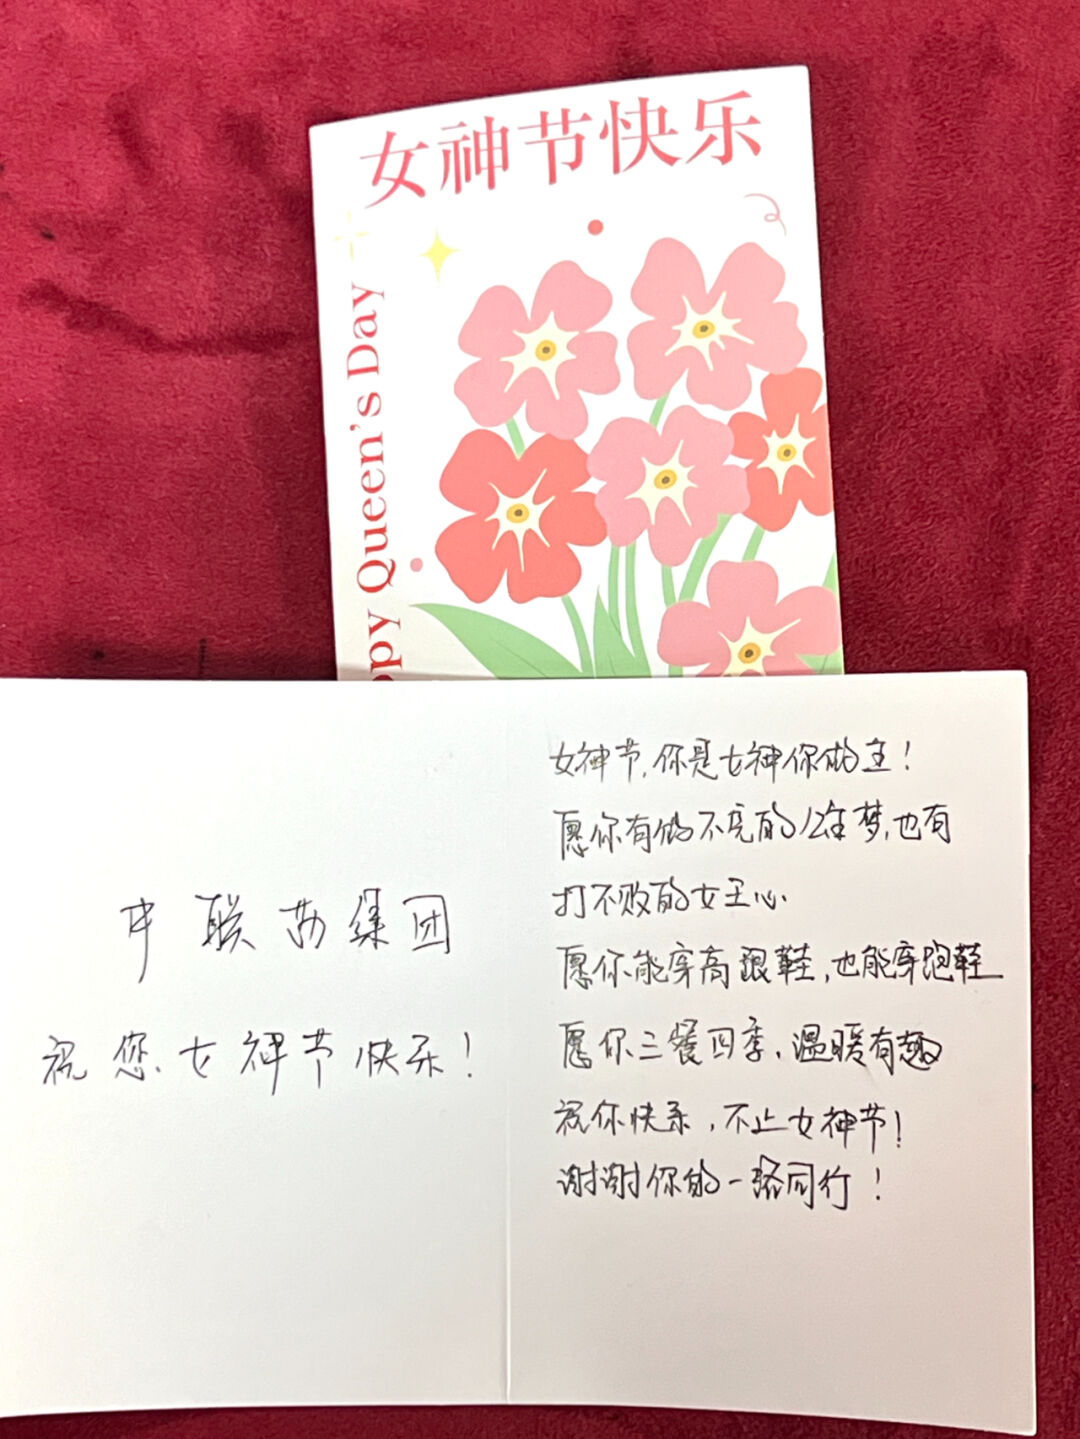 女神节快乐
ppy Queen's Day
中联集团
祝您女神节快乐！
女神节，你是女神你做主！
愿你有做不完的公主梦，也有
打不败的女王心.
愿你能穿高跟鞋，也能穿跑鞋
愿你三餐四季，温暖有趣
祝你快乐，不止女神节！
谢谢你的一路同行！